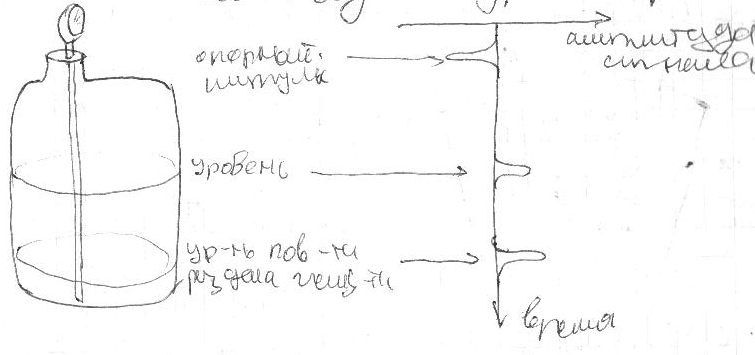 опорный
импульс
амплитуда
сигнала
уровень
ур-нь пов-ти
раздела жидк-ти
время